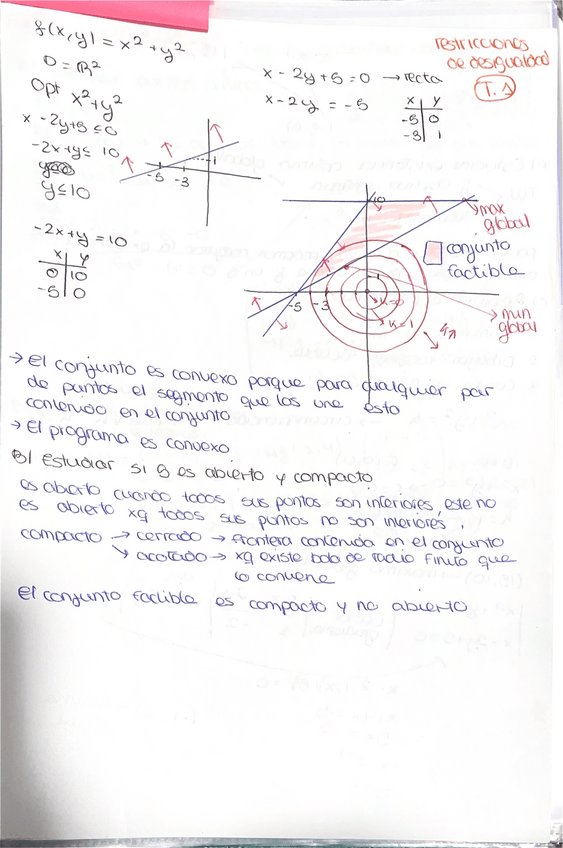 f(x,y) = x² + y²
D = R²
Opt x²+y²
x - 2y+5 ≤ 0
-2x+y ≤ 10
y ≤ 10
-2x+y = 10
x | y
0 | 10
-5 | 0
restricciones
de desigualdad
T. 1
x - 2y + 5 = 0 → recta
x - 2y = -5
x | y
-5 | 0
-3 | 1
-5 -3
10
max
global
conjunto
factible
1
-5 -3
K=0
K=1
min
global
→ El conjunto es convexo porque para cualquier par
de puntos el segmento que los une esta
contenido en el conjunto
→ El programa es convexo.
B) Estudiar si B es abierto y compacto
es abierto cuando todos sus puntos son interiores, este no
es abierto xq todos sus puntos no son interiores.
compacto → cerrado → frontera contenida en el conjunto
↘ acotado → xq existe bola de radio finito que
lo contiene
El conjunto factible es compacto y no abierto